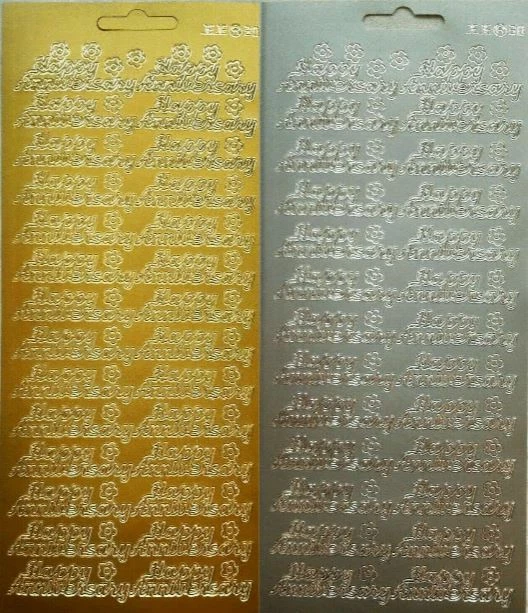 Happy Happy
Anniversary Anniversary
Happy Happy
Anniversary Anniversary
Happy Happy
Anniversary Anniversary
Happy Happy
Anniversary Anniversary
Happy Happy
Anniversary Anniversary
Happy Happy
Anniversary Anniversary
Happy Happy
Anniversary Anniversary
Happy Happy
Anniversary Anniversary
Happy Happy
Anniversary Anniversary
Happy Happy
Anniversary Anniversary
Happy Happy
Anniversary Anniversary
Happy Happy
Anniversary Anniversary
Happy Happy
Anniversary Anniversary
Happy Happy
Anniversary Anniversary
Happy Happy
Anniversary Anniversary
Happy Happy
Anniversary Anniversary
Happy Happy
Anniversary Anniversary
Happy Happy
Anniversary Anniversary
Happy Happy
Anniversary Anniversary
Happy Happy
Anniversary Anniversary
Happy Happy
Anniversary Anniversary
Happy Happy
Anniversary Anniversary
Happy Happy
Anniversary Anniversary
Happy Happy
Anniversary Anniversary
Happy Happy
Anniversary Anniversary
Happy Happy
Anniversary Anniversary
Happy Happy
Anniversary Anniversary